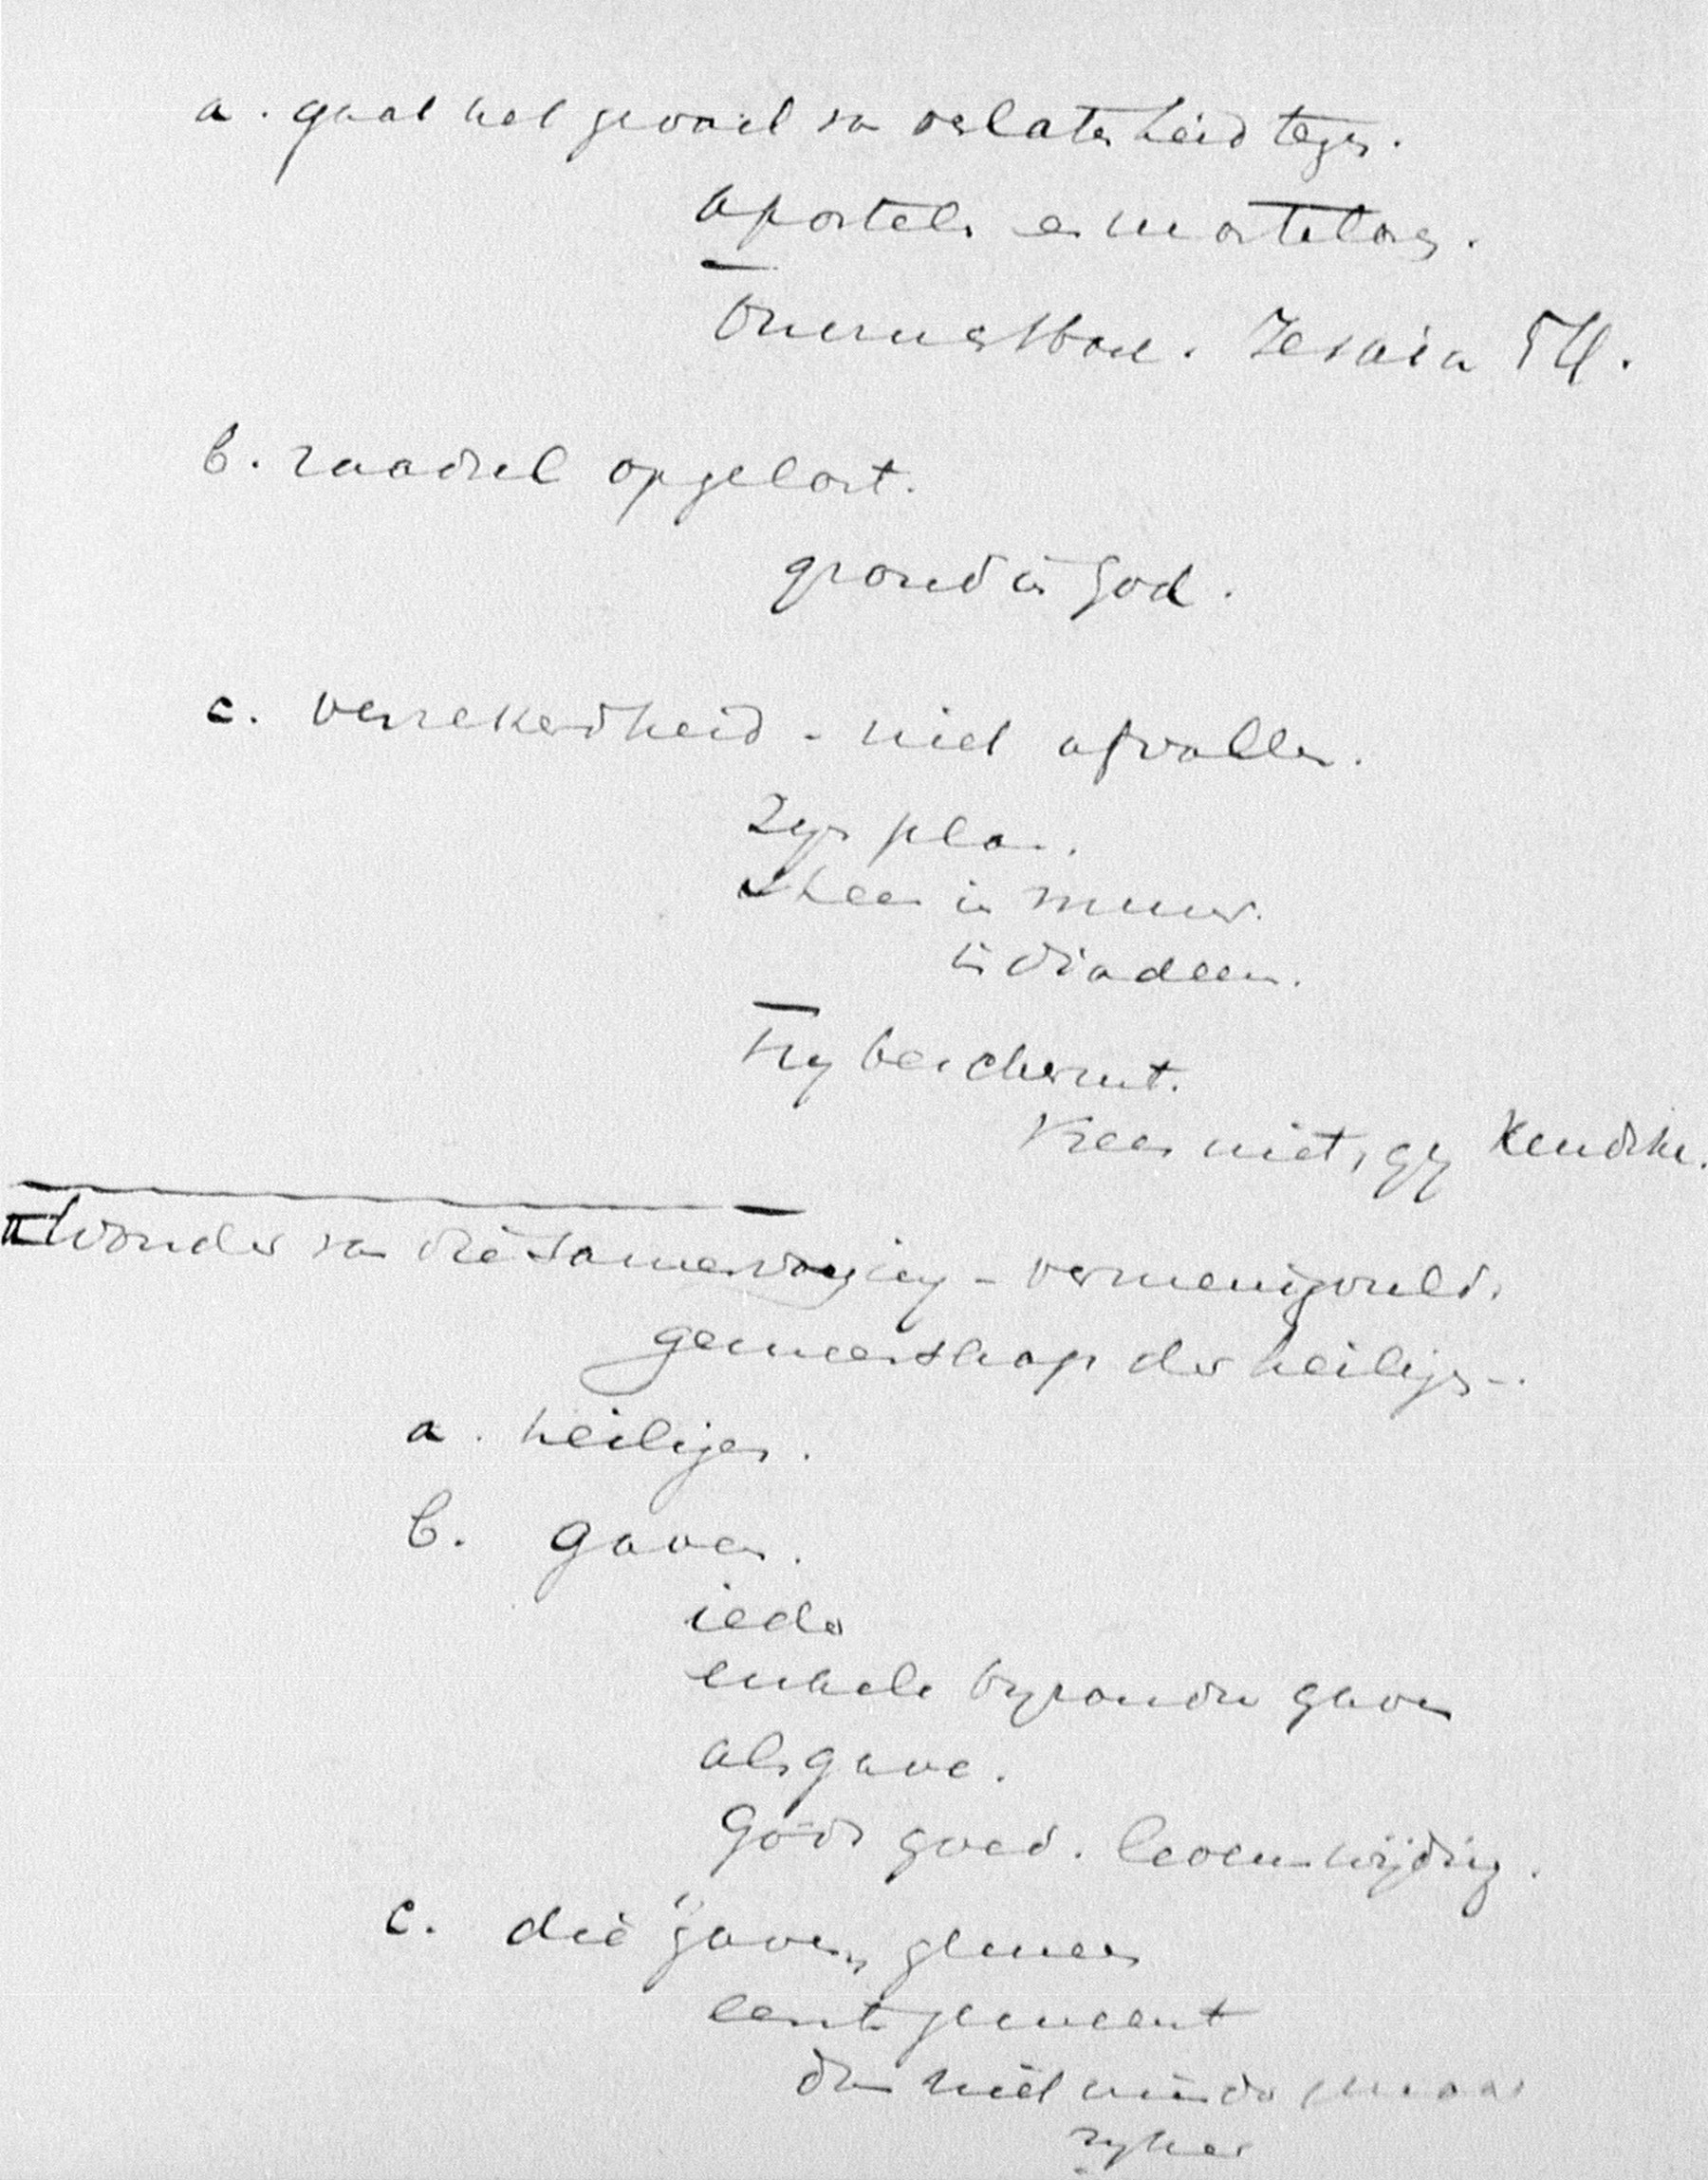 a. gaat het gevoel van verlatenheid tegen.
apostelen en martelaren.
Onverwoestbaar. Jesaia 54.
b. raadsel opgelost.
grond in God.
c. verzekerdheid - niet afvallen.
Zijn plan.
steen in muur.
in diadeem.
Hij beschermt.
Vrees niet, gij kleindke.
II Wonder van die samenvoeging - vermenigvuld.
gemeenschap der heiligen -.
a. heiligen.
b. gaven.
ieder
enkele byzondere gaven
als gave.
Gods goed. levenswijding.
c. die "gaven" gemeen
eerst gemeent
dan niet minder maar
ryker